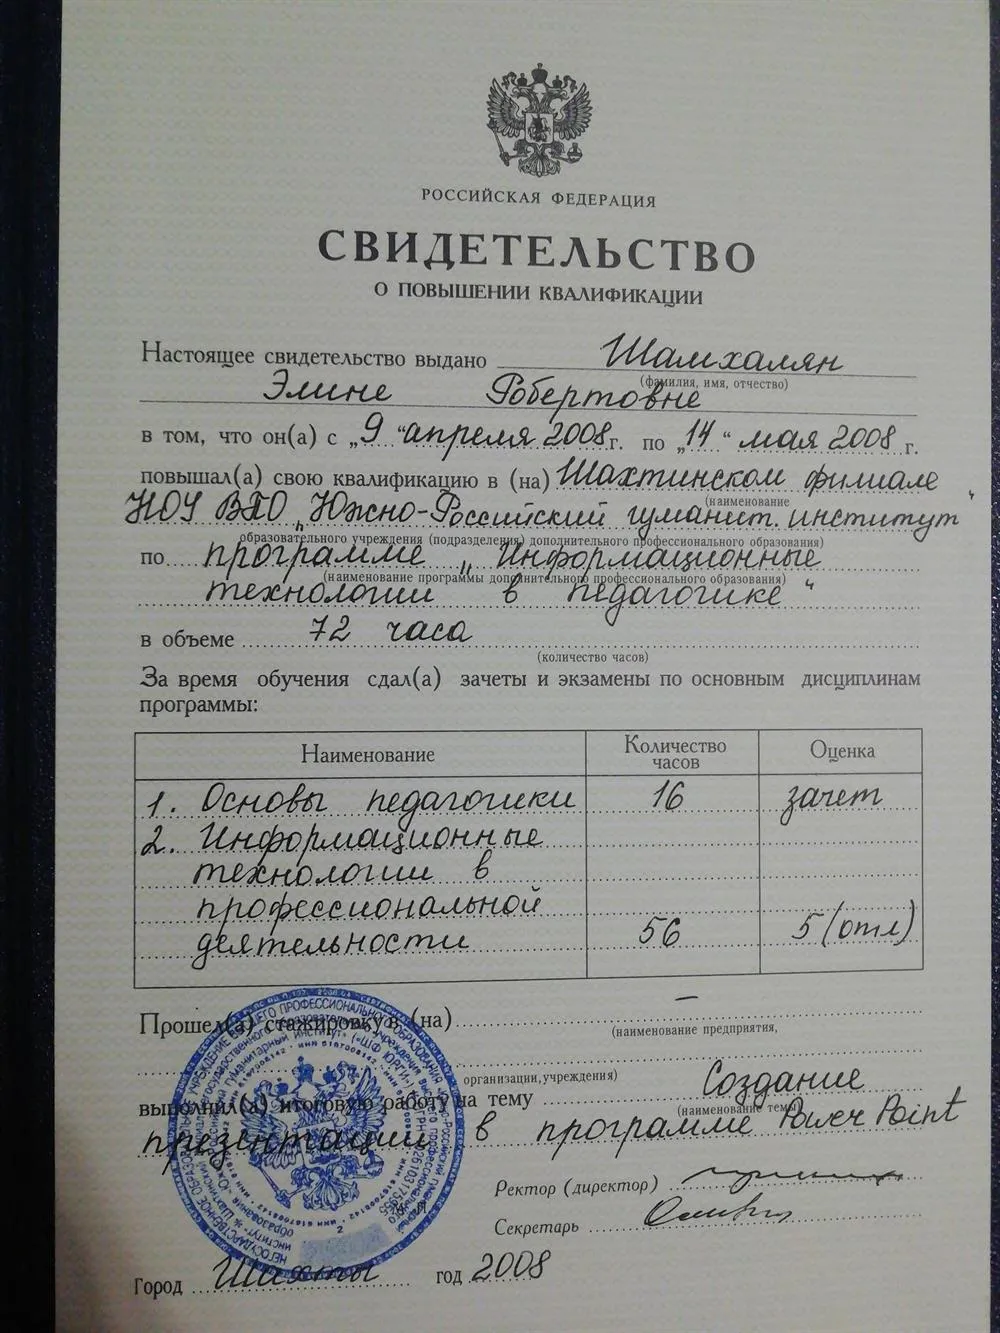 РОССИЙСКАЯ ФЕДЕРАЦИЯ
СВИДЕТЕЛЬСТВО
О ПОВЫШЕНИИ КВАЛИФИКАЦИИ
Настоящее свидетельство выдано Шамхалян
(фамилия, имя, отчество)
Элине Робертовне
в том, что он(а) с „9 “ апреля 2008 г. по „14 “ мая 2008 г.
повышал(а) свою квалификацию в (на) Шахтинском филиале
(наименование
НОУ ВПО „Южно-Российский гуманит. институт“
образовательного учреждения (подразделения) дополнительного профессионального образования)
по программе „Информационные
(наименование программы дополнительного профессионального образования)
технологии в педагогике“
в объеме 72 часа
(количество часов)
За время обучения сдал(а) зачеты и экзамены по основным дисциплинам
программы:
Наименование Количество часов Оценка
1. Основы педагогики 16 зачет
2. Информационные
технологии в
профессиональной
деятельности 56 5 (отл)
Прошел(а) стажировку в (на) —
(наименование предприятия,
организации, учреждения)
выполнил(а) итоговую работу на тему Создание
(наименование темы)
презентации в программе Power Point
Ректор (директор)
Секретарь
Город Шахты год 2008